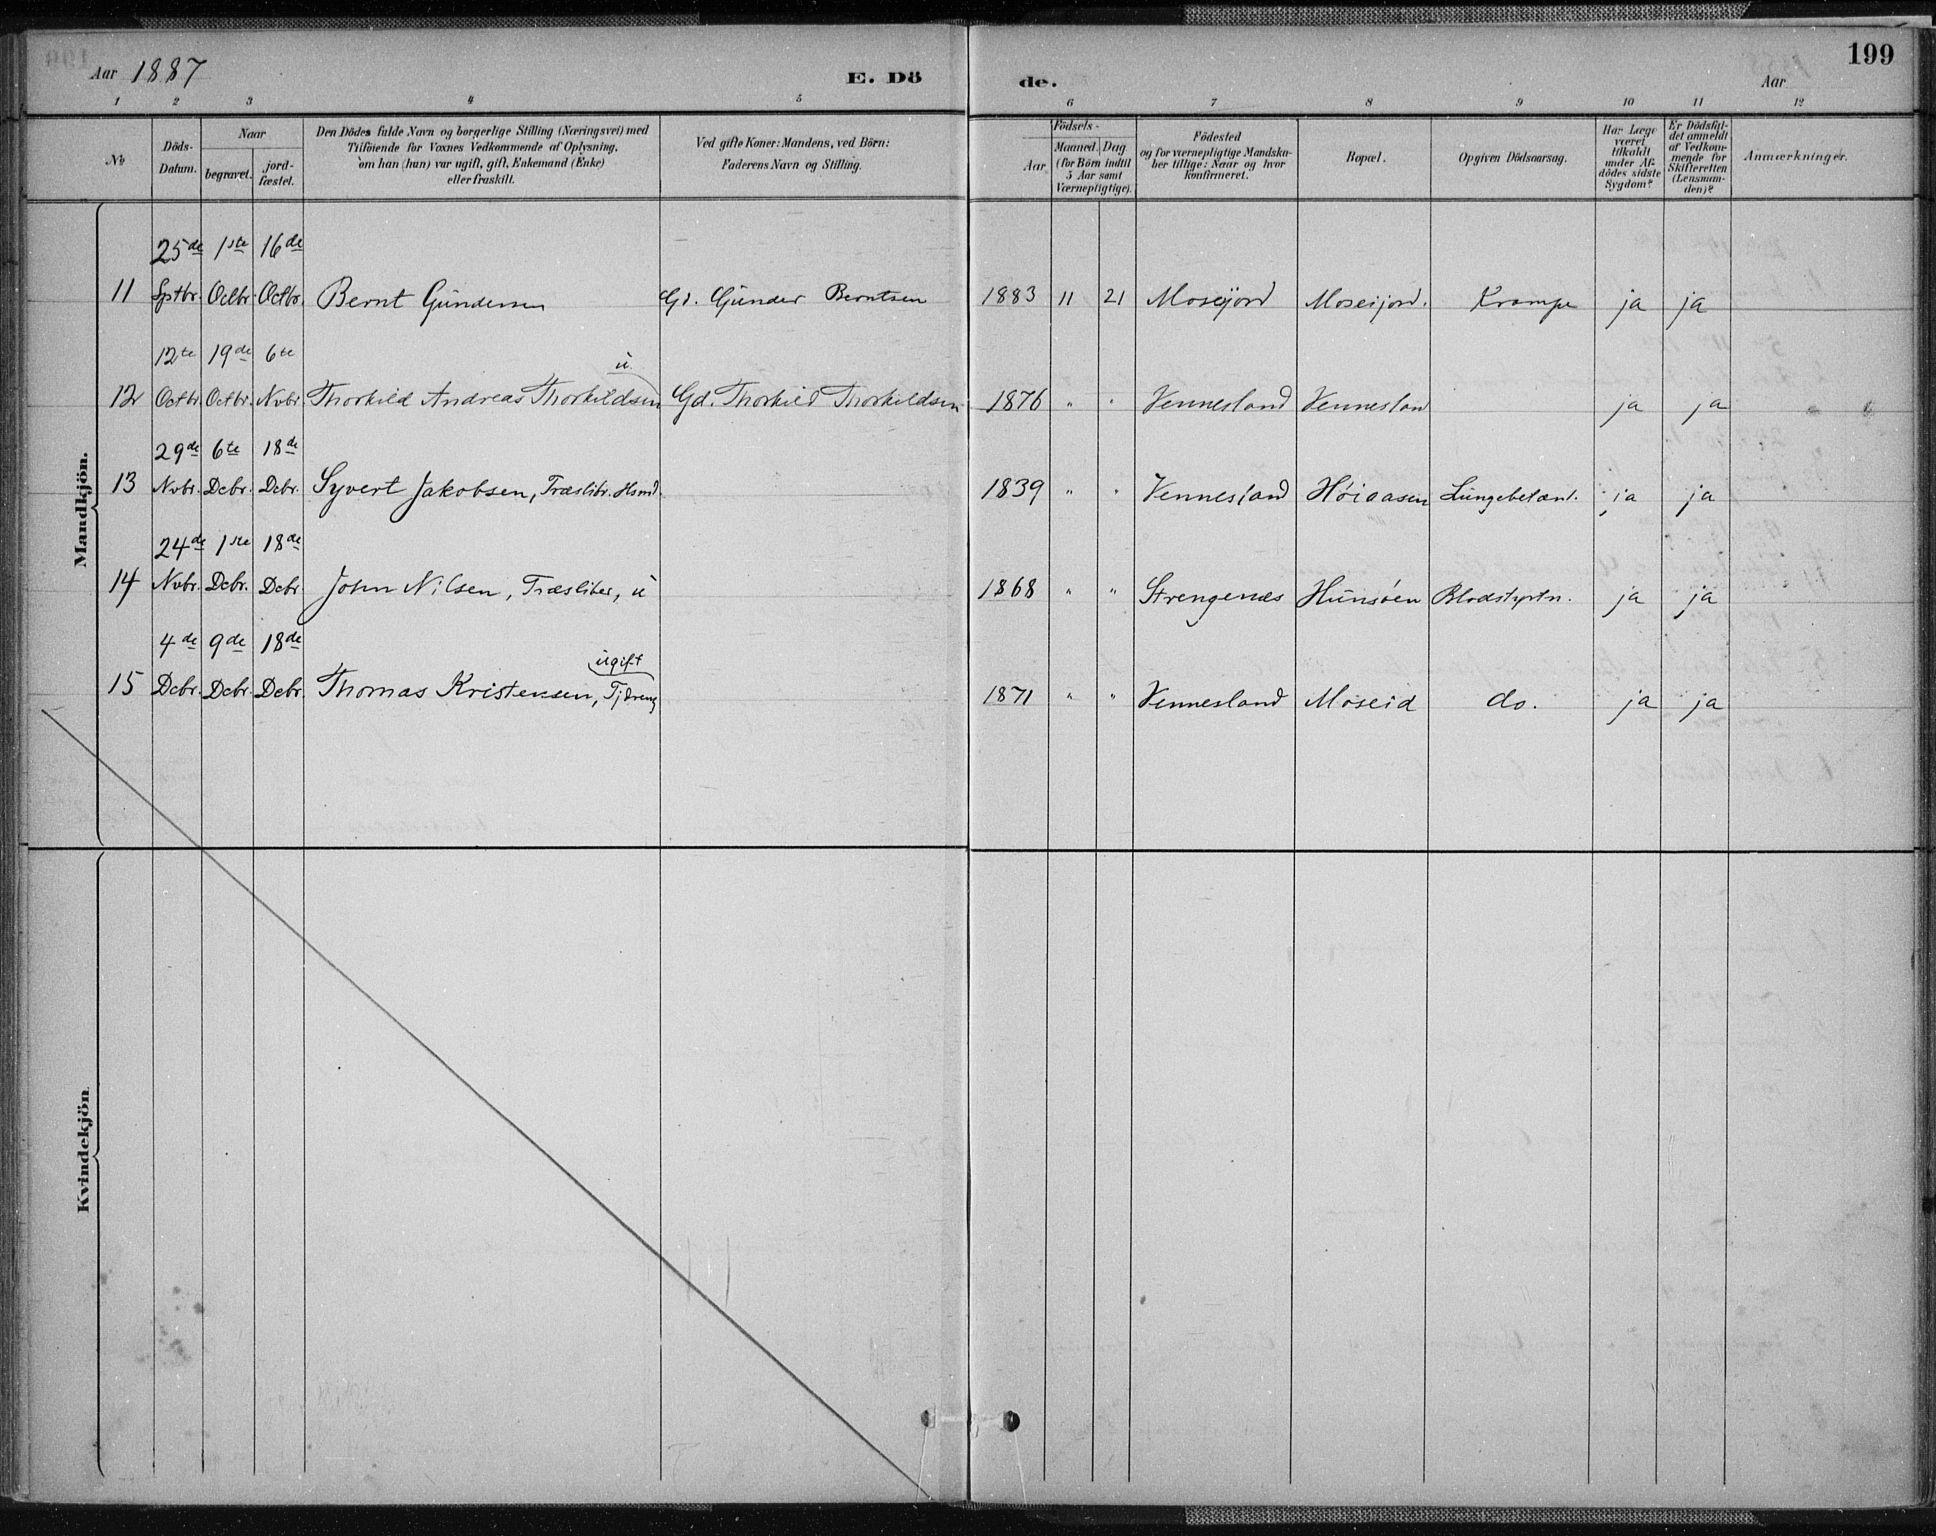 Aar 1887
E. Dö
de.
Aar
199
1 2 3 4 5 6 7 8 9 10 11 12
No
Döds-Datum.
Naar
begravet.
jord-fæstet.
Den Dödes fulde Navn og borgerlige Stilling (Næringsvei) med
Tilföiende for Voxnes Vedkommende af Oplysning,
om han (hun) var ugift, gift, Enkemand (Enke)
eller fraskilt.
Ved gifte Koner: Mandens, ved Börn:
Faderens Navn og Stilling.
Födsels-
Aar
Maaned. Dag
(for Börn indtil
5 Aar samt
Værnepligtige).
Födested
og for værnepligtige Mandska-
ber tillige: Naar og hvor
konfirmeret.
Bopæl.
Opgiven Dödsaarsag.
Har Læge
været
tilkaldt
under Af-
dödes sidste
Sygdom?
Er Dödsfal-
det anmeldt
af Vedkom-
mende for
Skifteretten
(Lensman-
den)?
Anmærkninger.
Mandkjön.
25de 1ste 16de
11 Sptbr. Octbr. Octbr. Bernt Gundersen Gd. Gunder Berntsen 1883 11 21 Moseijord Moseijord. Krampe ja ja
12te 19de 6te
u.
12 Octbr. Octbr. Nvbr. Thorkild Andreas Thorkildsen Gd. Thorkild Thorkildsen 1876 " " Vennesland Venneslan ja ja
29de 6te 18de
13 Nvbr. Dcbr. Dcbr. Syvert Jakobsen, Træslibr. Hsmd. 1839 " " Vennesland Höiaasen Lungebetænd. ja ja
24de 1ste 18de
14 Nvbr. Dcbr. Dcbr. John Nilsen, Træsliber, u 1868 " " Strengenæs Hunsöen Blodstyrtn. ja ja
4de 9de 18de
ugift
15 Dcbr. Dcbr. Dcbr. Thomas Kristensen, Tjdreng 1871 " " Vennesland Moseid do. ja ja
Kvindekjön